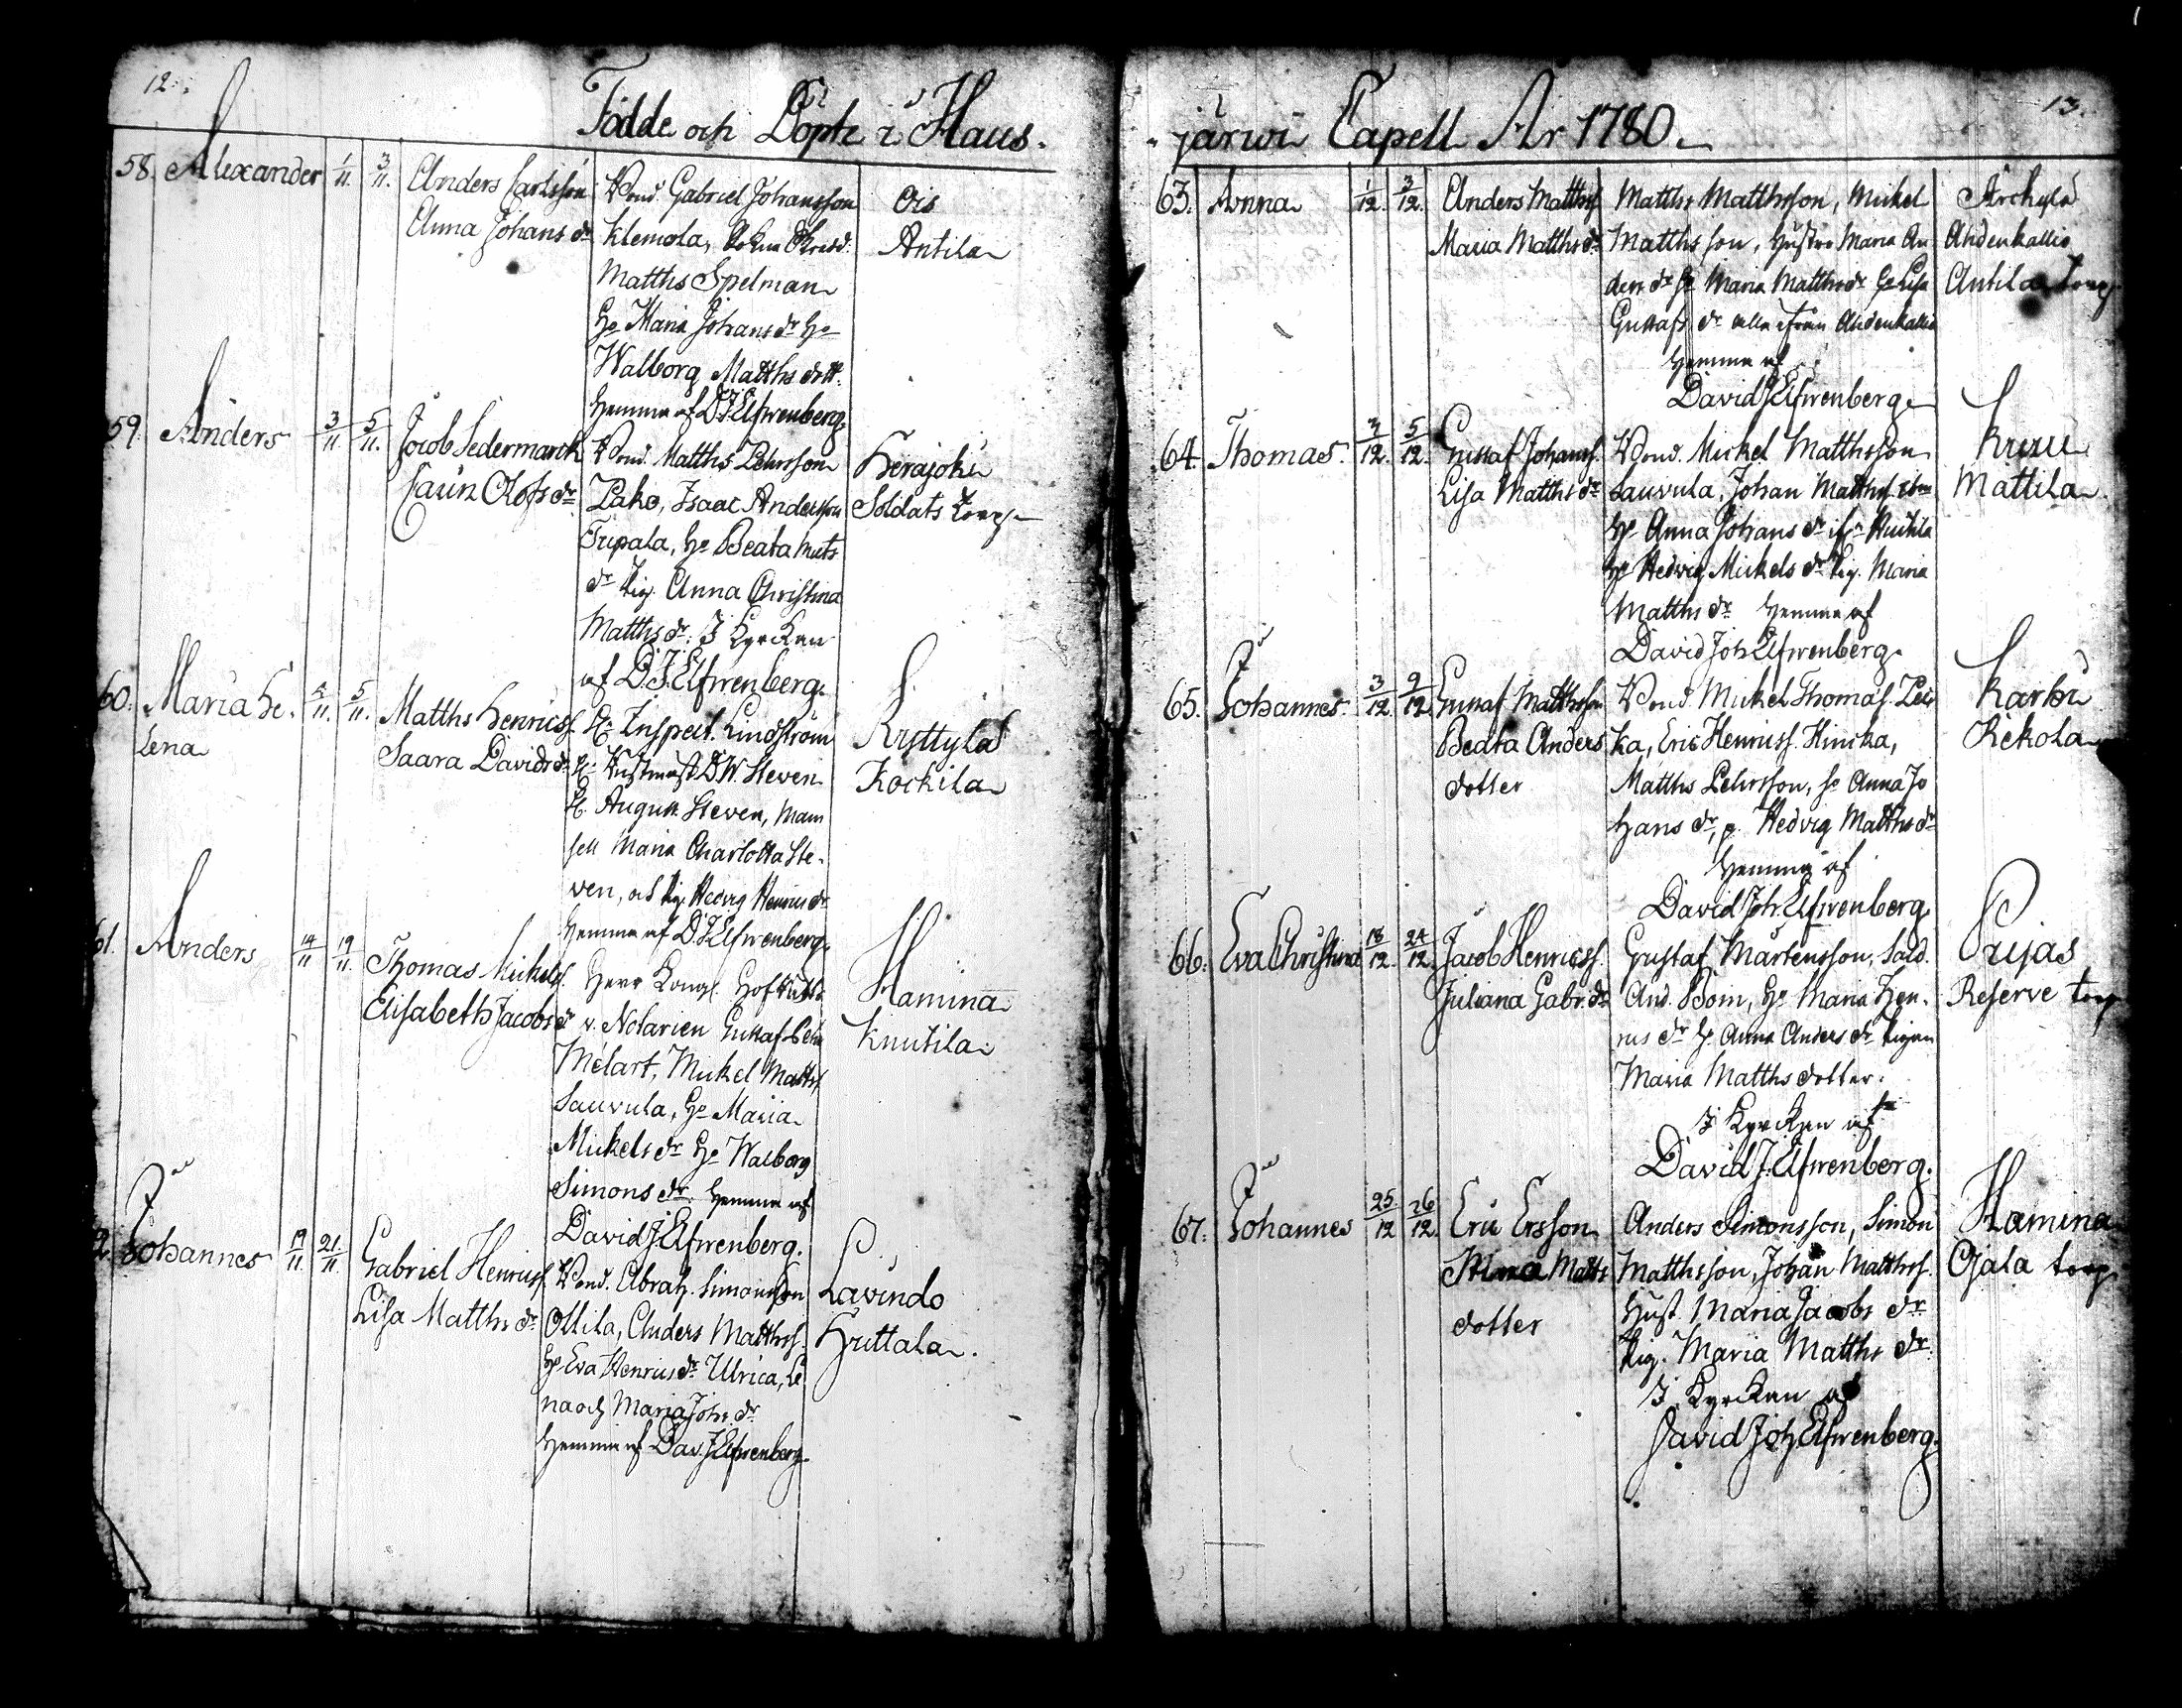 12.
Födde och Döpte i Haus-
58. Alexander 1/11. 3/11. Anders Carlsson
Anna Johans dr
Bond. Gabriel Johansson
Klemola,
Matths Spelman
Ho Maria Johans dr Ho
Walborg Matths dott.
Hemma af D.J.Elfwenberg.
Ois
Antila
59. Anders 3/11. 5/11. Jacob Sedermarck
Carin Olofs dr
Bond. Matths Pehrsson
Pako, Isaac Andersson
Tupala, Ho Beata Mats
dr Pig. Anna Christina
Matths dr. I Kyrckan
af D.J.Elfwenberg.
Herajoki
Soldats Torp
60. Maria He-
lena
4/11. 5/11. Matths Henricss.
Saara Davids dr
Hr Inspect. Lindström
Hr D.W. Steven
Hr August. Steven, Mam
sell Maria Charlotta Ste-
ven, och Pig. Hedvig Henrics dr
Hemma af D.J.Elfwenberg.
Ryttylä
Kockila
61. Anders 14/11 19/11. Thomas Mickelss.
Elisabeth Jacobs dr
Herr Kongl. Hof Rätts
v. Notarien Gustaf
Melart, Mickel Matthss.
Sauvula, Ho Maria
Mickels dr Ho Walborg
Simons dr. Hemma af
David J.Elfwenberg.
Hamina
Knutila
2. Johannes 19/11. 21/11. Gabriel Henricss.
Lisa Matths dr
Bond. Abrah. Simonsson
Ollila, Anders Matthss.
Ho Eva Henrics dr Ulrica, Le
na och Maria Johs. dr
Hemma af Dav.J.Elfwenberg.
Lavindo
Huttala.
13.
-järwi Capell År 1780.
63. Anna 1/12. 3/12. Anders Matthss.
Maria Matths dr
Matths Matthsson, Mickel
Matthsson, Hustro Maria An
ders dr Ho Maria Matths dr Ho Lisa
Gustafs dr alla ifrån Ahdenkallio
Hemma af
David J.Elfwenberg.
Ärchylä
Ahdenkallio
Antila Torp
64. Thomas. 12. 5/12. Gustaf Johanss.
Lisa Matths dr
Bond. Mickel Matthsson
Sauvula, Johan Matthss.
Ho Anna Johans dr
Ho Hedvig Mickels dr Pig. Maria
Matths dr Hemma af
David Joh Elfwenberg.
Mattila.
65. Johannes 3/12. 9/12. Gustaf Matthsson
Beata Anders
dotter
Bond. Mickel Thomass.
ka, Eric Henricss. Hincka,
Matths Pehrsson, Ho Anna Jo
hans dr, p. Hedvig Matths dr
Hemma af
David Joh.Elfwenberg.
Karhi
Kekola
66. Eva Christina 18/12. 24/12. Jacob Henricss.
Juliana Gabr. dr
Gustaf Mårtensson, Sold.
And. Bom, Ho Maria Hen-
rics dr Ho Anna Anders dr Pigan
Maria Matths dotter.
I Kyrckan af
David J.Elfwenberg.
Pujas
Reserve torp
67. Johannes 25/12 26/12. Eric Ersson
Stina Matts
dotter
Anders Simonsson, Simon
Matthsson, Johan Matthss.
Hust. Maria Jacobs dr
Pig. Maria Matths dr.
I Kyrckan af
David Joh Elfwenberg.
Hamina
Ojala torp